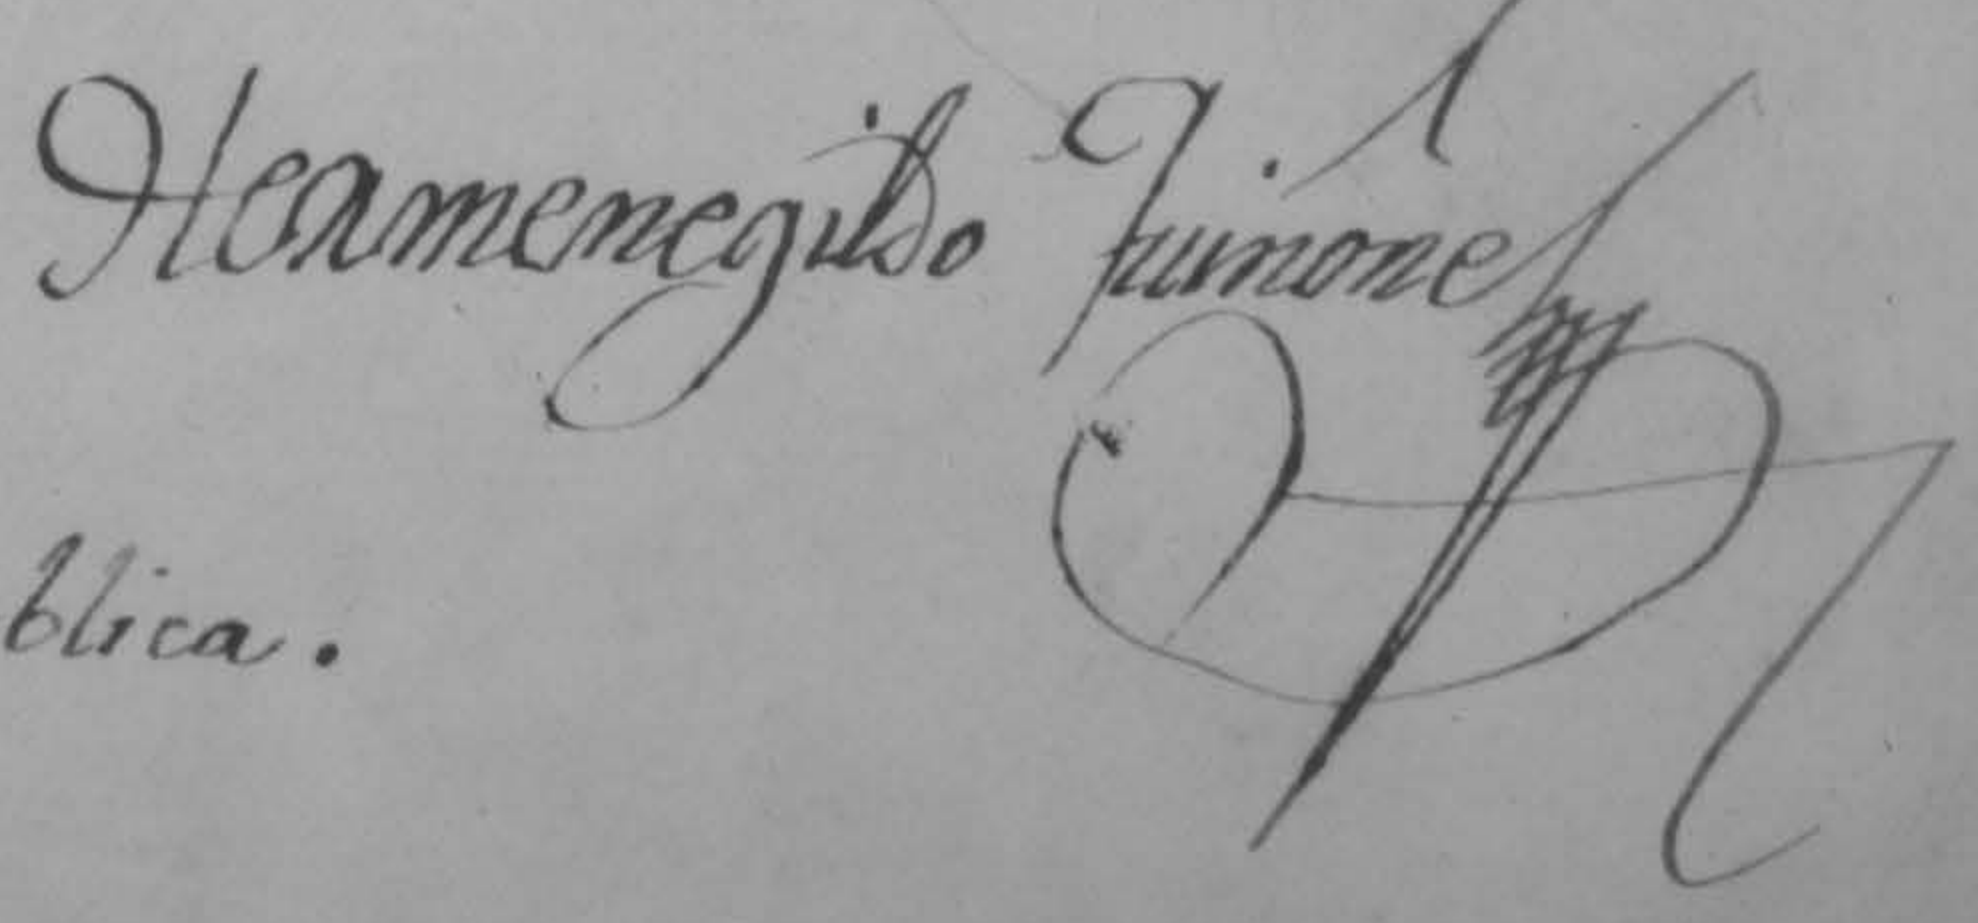 Hermenegildo Quiñones
blica.